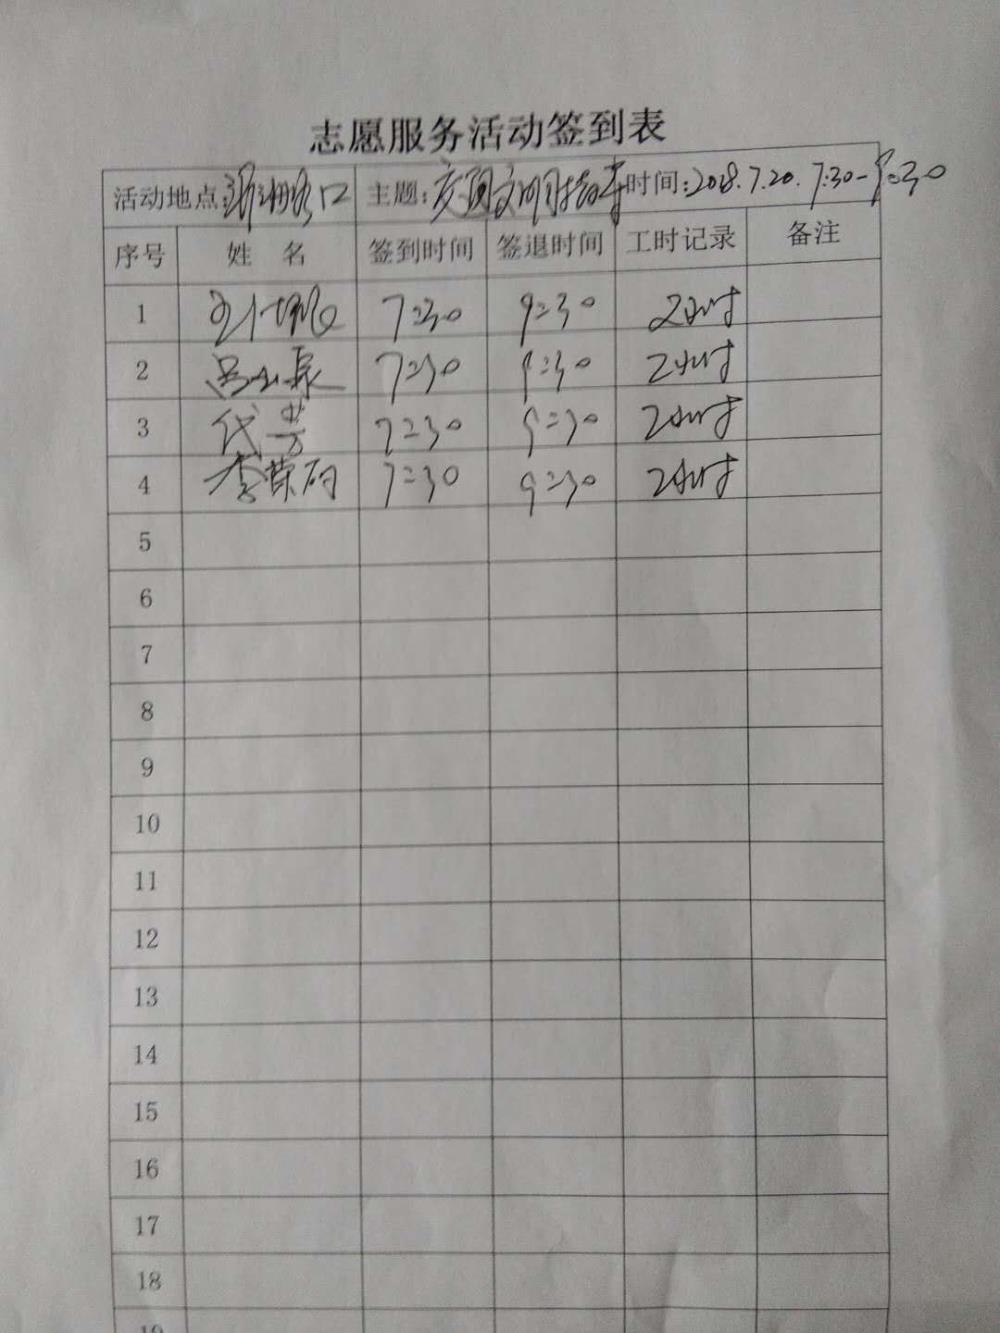 志愿服务活动签到表
活动地点: 路口 主题: 交通文明 时间: 2018.7.20. 7:30-9:30
序号 姓 名 签到时间 签退时间 工时记录 备注
1 7:30 9:30 2小时
2 7:30 9:30 2小时
3 代芳 7:30 9:30 2小时
4 李荣 7:30 9:30 2小时
5
6
7
8
9
10
11
12
13
14
15
16
17
18
19